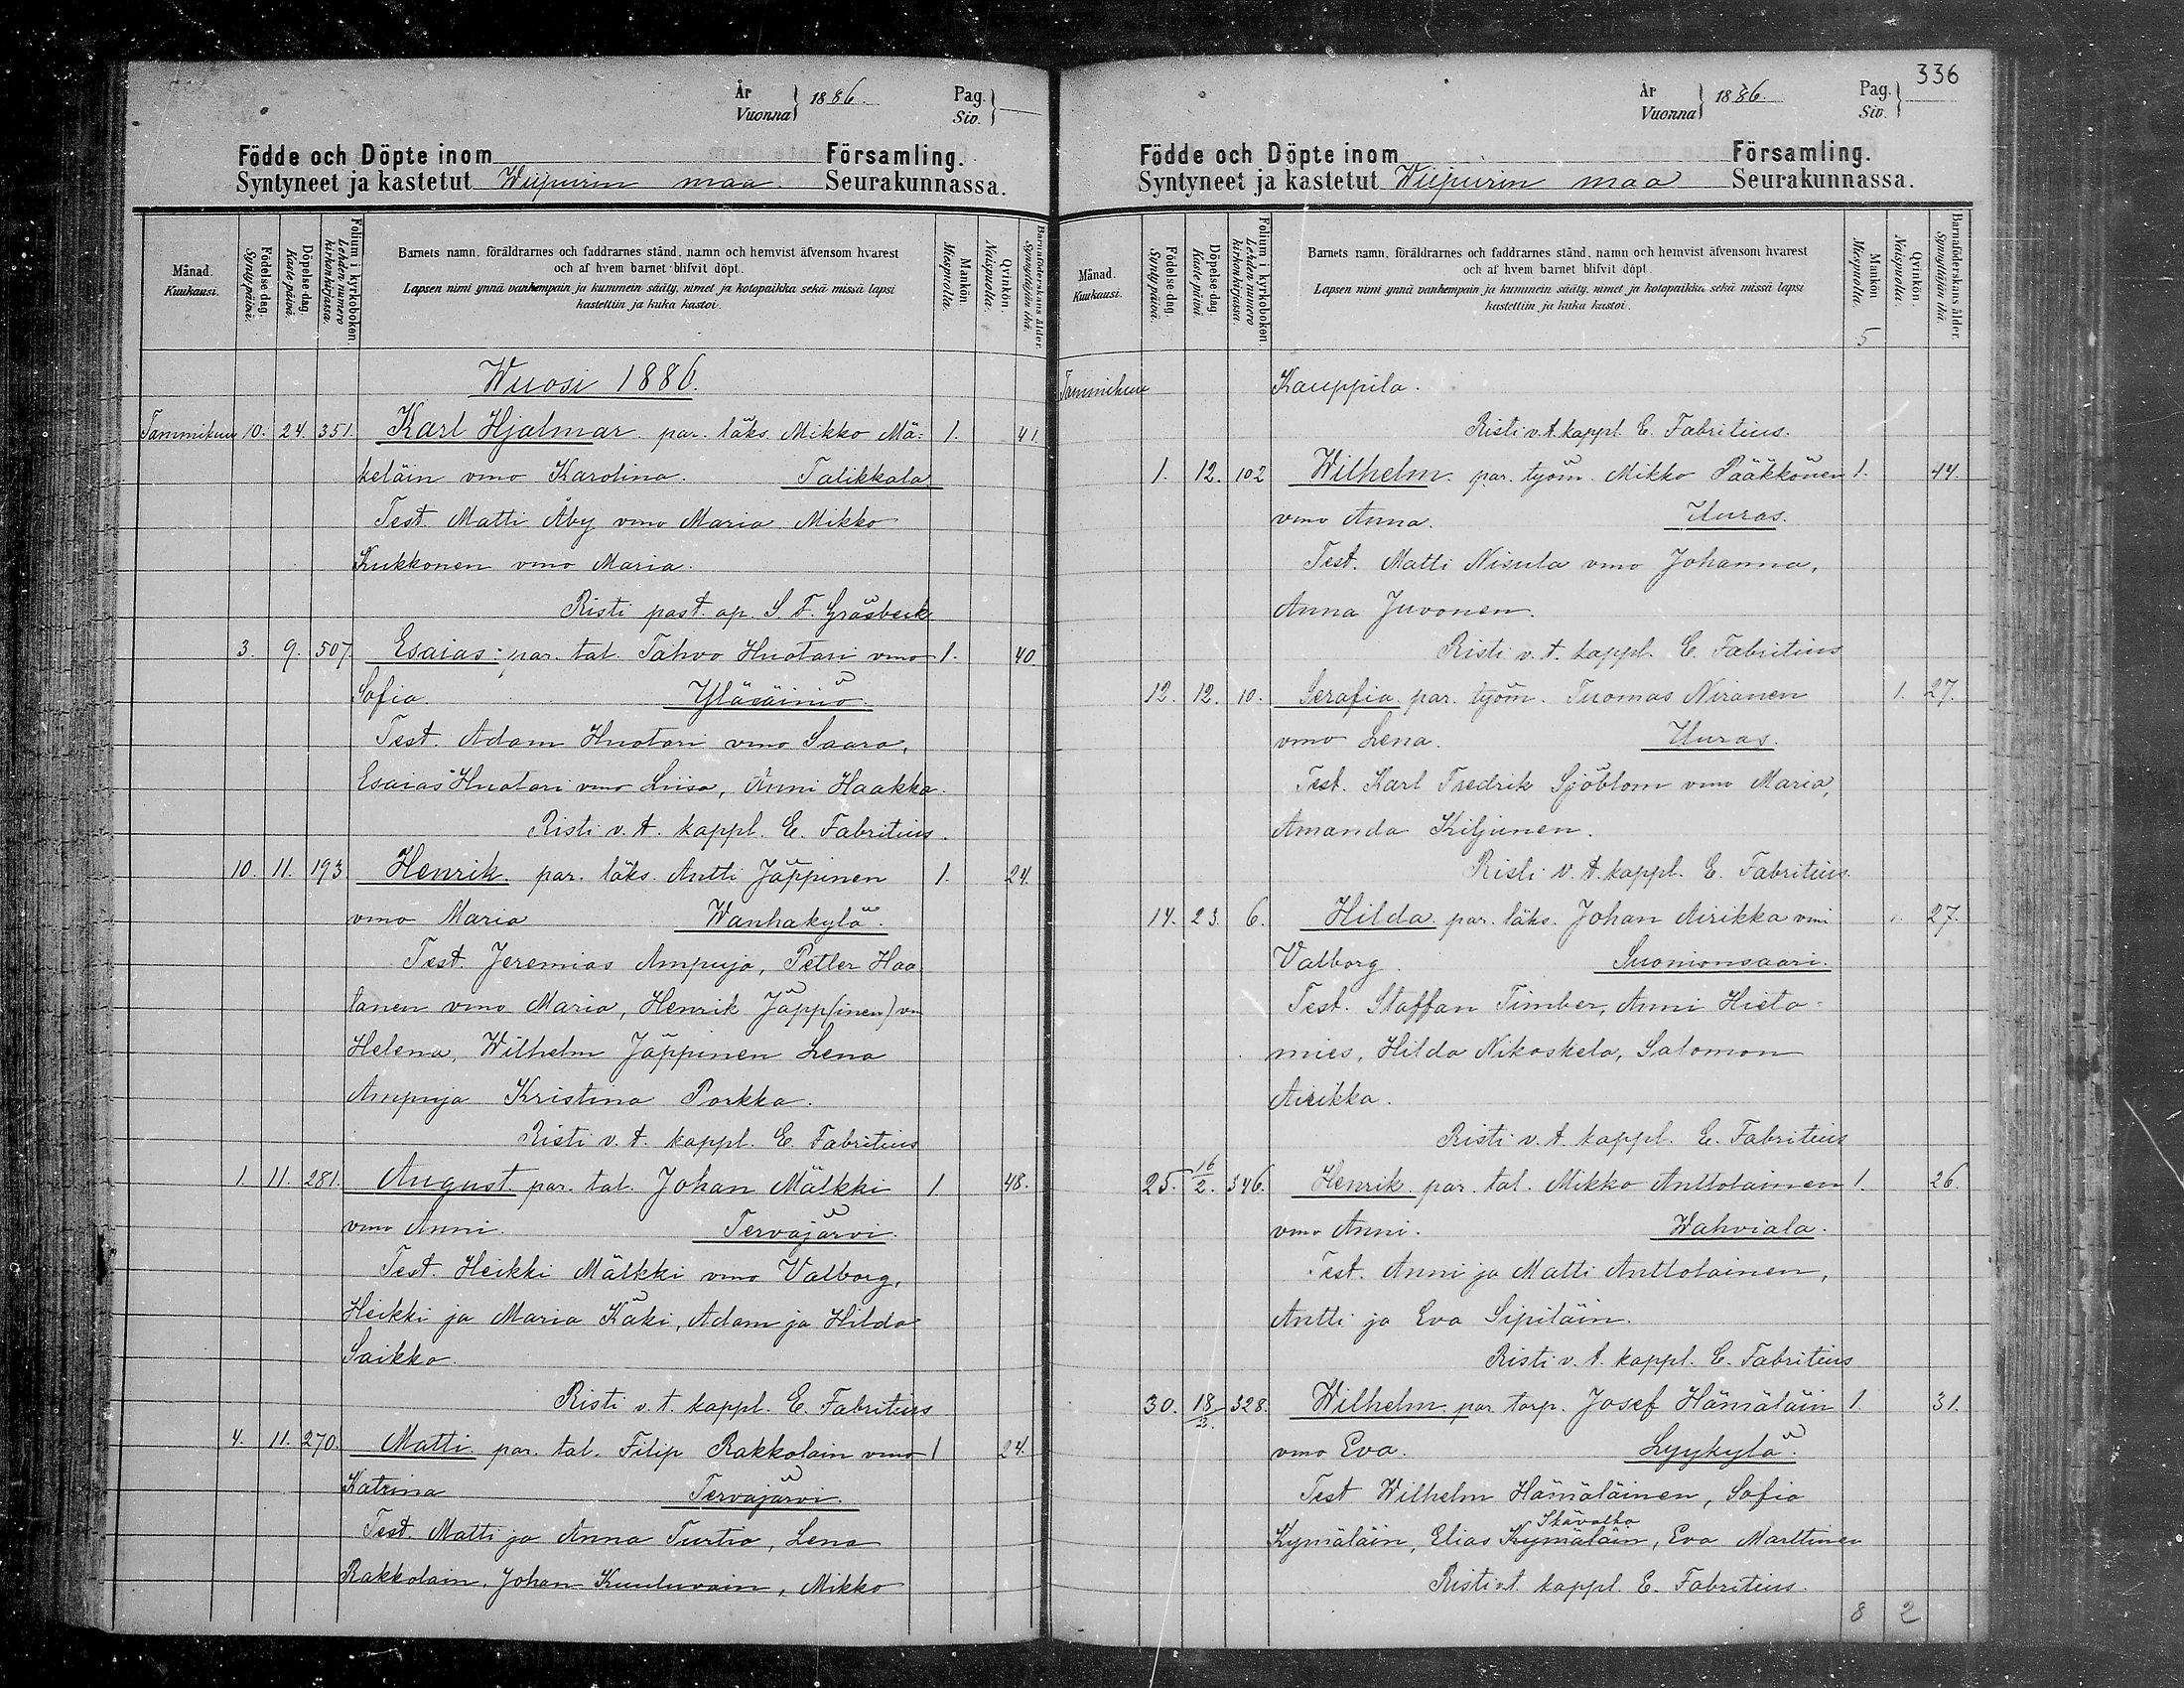 År
Vuonna } 1886. Pag.
Siv. }
Födde och Döpte inom Församling.
Syntyneet ja kastetut Wiipurin maa Seurakunnassa.
Månad.
Kuukausi.
Födelse-dag.
Syntypäivä.
Döpelse-dag.
Kastepäivä.
Folium i kyrkoboken
Lehden numero
kirkonkirjassa.
Barnets namn, föräldrarnes och faddrarnes stånd, namn och hemvist äfvensom hvarest
och af hvem barnet blifvit döpt.
Lapsen nimi ynnä vanhempain ja kummein sääty, nimet ja kotopaikka sekä missä lapsi
kastettiin ja kuka kastoi.
Mankön
Miespuolta.
Qvinkön.
Naispuolta.
Barnaföderskans ålder.
Synnyttäjän ikä.
Wuosi 1886.
Tammikuu 10. 24. 351. Karl Hjalmar par. läks. Mikko Mä- 1. 41.
keläin vmo Karolina. Talikkala
Test. Matti Åby vmo Maria Mikko
Kukkonen vmo Maria.
Risti past. ap. S. F. Gräsbeck
3. 9. 507. Esaias: par. tal. Tahvo Huotari vmo 1. 40
Sofia. Yläsäiniö
Test. Adam Huotari vmo Saara,
Esaias Huotari vmo Liisa, Anni Haakka.
Risti v. t. kappl. E. Fabritius.
10. 11. 193 Henrik. par. läks. Antti Jäppinen 1. 24.
vmo Maria Wanhakylä.
Test. Jeremias Ampuja, Petter Haa
lanen vmo Maria, Henrik Jäpp(inen) vm
Helena, Wilhelm Jäppinen Lena
Ampuja Kristina Porkka.
Risti v. t. kappl. E. Fabritius
1. 11. 281. August. par. tal. Johan Mälkki 1. 48.
vmo Anni. Tervajärvi.
Test. Heikki Mälkki vmo Valborg,
Heikki ja Maria Käki, Adam ja Hilda
Saikko.
Risti v. t. kappl. E. Fabritius
4. 11. 270. Matti par. tal. Filip Rakkolain vmo 1 24.
Katrina Tervajärvi.
Test. Matti ja Anna Turtia, Lena
Rakkolain, Johan Kuuluvain, Mikko
336
År
Vuonna } 1886. Pag.
Siv. }
Födde och Döpte inom Församling.
Syntyneet ja kastetut Wiipurin maa Seurakunnassa.
Månad.
Kuukausi.
Födelse-dag.
Syntypäivä.
Döpelse-dag.
Kastepäivä.
Folium i kyrkoboken
Lehden numero
kirkonkirjassa.
Barnets namn, föräldrarnes och faddrarnes stånd, namn och hemvist äfvensom hvarest
och af hvem barnet blifvit döpt.
Lapsen nimi ynnä vanhempain ja kummein sääty, nimet ja kotopaikka sekä missä lapsi
kastettiin ja kuka kastoi.
Mankön
Miespuolta.
Qvinkön.
Naispuolta.
Barnaföderskans ålder.
Synnyttäjän ikä.
5
Tammikuu Kauppila.
Risti v. t. kappl. E. Fabritius.
1. 12. 102 Wilhelm. par. työm. Mikko Pääkkönen 1. 44.
vmo Anna. Uuras.
Test. Matti Nisula vmo Johanna,
Anna Juvonen.
Risti v. t. kappl. E. Fabritius
12. 12. 10. Serafia par. työm. Tuomas Niranen 1. 27.
vmo Lena. Uuras.
Test. Karl Fredrik Sjöblom vmo Maria,
Amanda Kiljunen.
Risti v. t. kappl. E. Fabritius.
14. 23. 6. Hilda par. läks. Johan Airikka vmi 1. 27.
Valborg. Suonionsaari.
Test. Staffan Timber, Anni Hieta-
mies, Hilda Nikoskela, Salomon
Airikka.
Risti v. t. kappl. E. Fabritius
25. 16/2. 346. Henrik par. tal. Mikko Anttolainen 1. 26.
vmo Anni. Wahviala.
Test. Anni ja Matti Anttolainen,
Antti ja Eva Sipiläin.
Risti v. t. kappl. E. Fabritius
30. 18/2. 328. Wilhelm par torp. Josef Hämäläin 1. 31.
vmo Eva. Lyykylä.
Test Wilhelm Hämäläinen, Sofia
Ikävalko
Kymäläin, Elias Kymäläin, Eva Marttinen
Risti v.t. kappl. E. Fabritius.
8 2